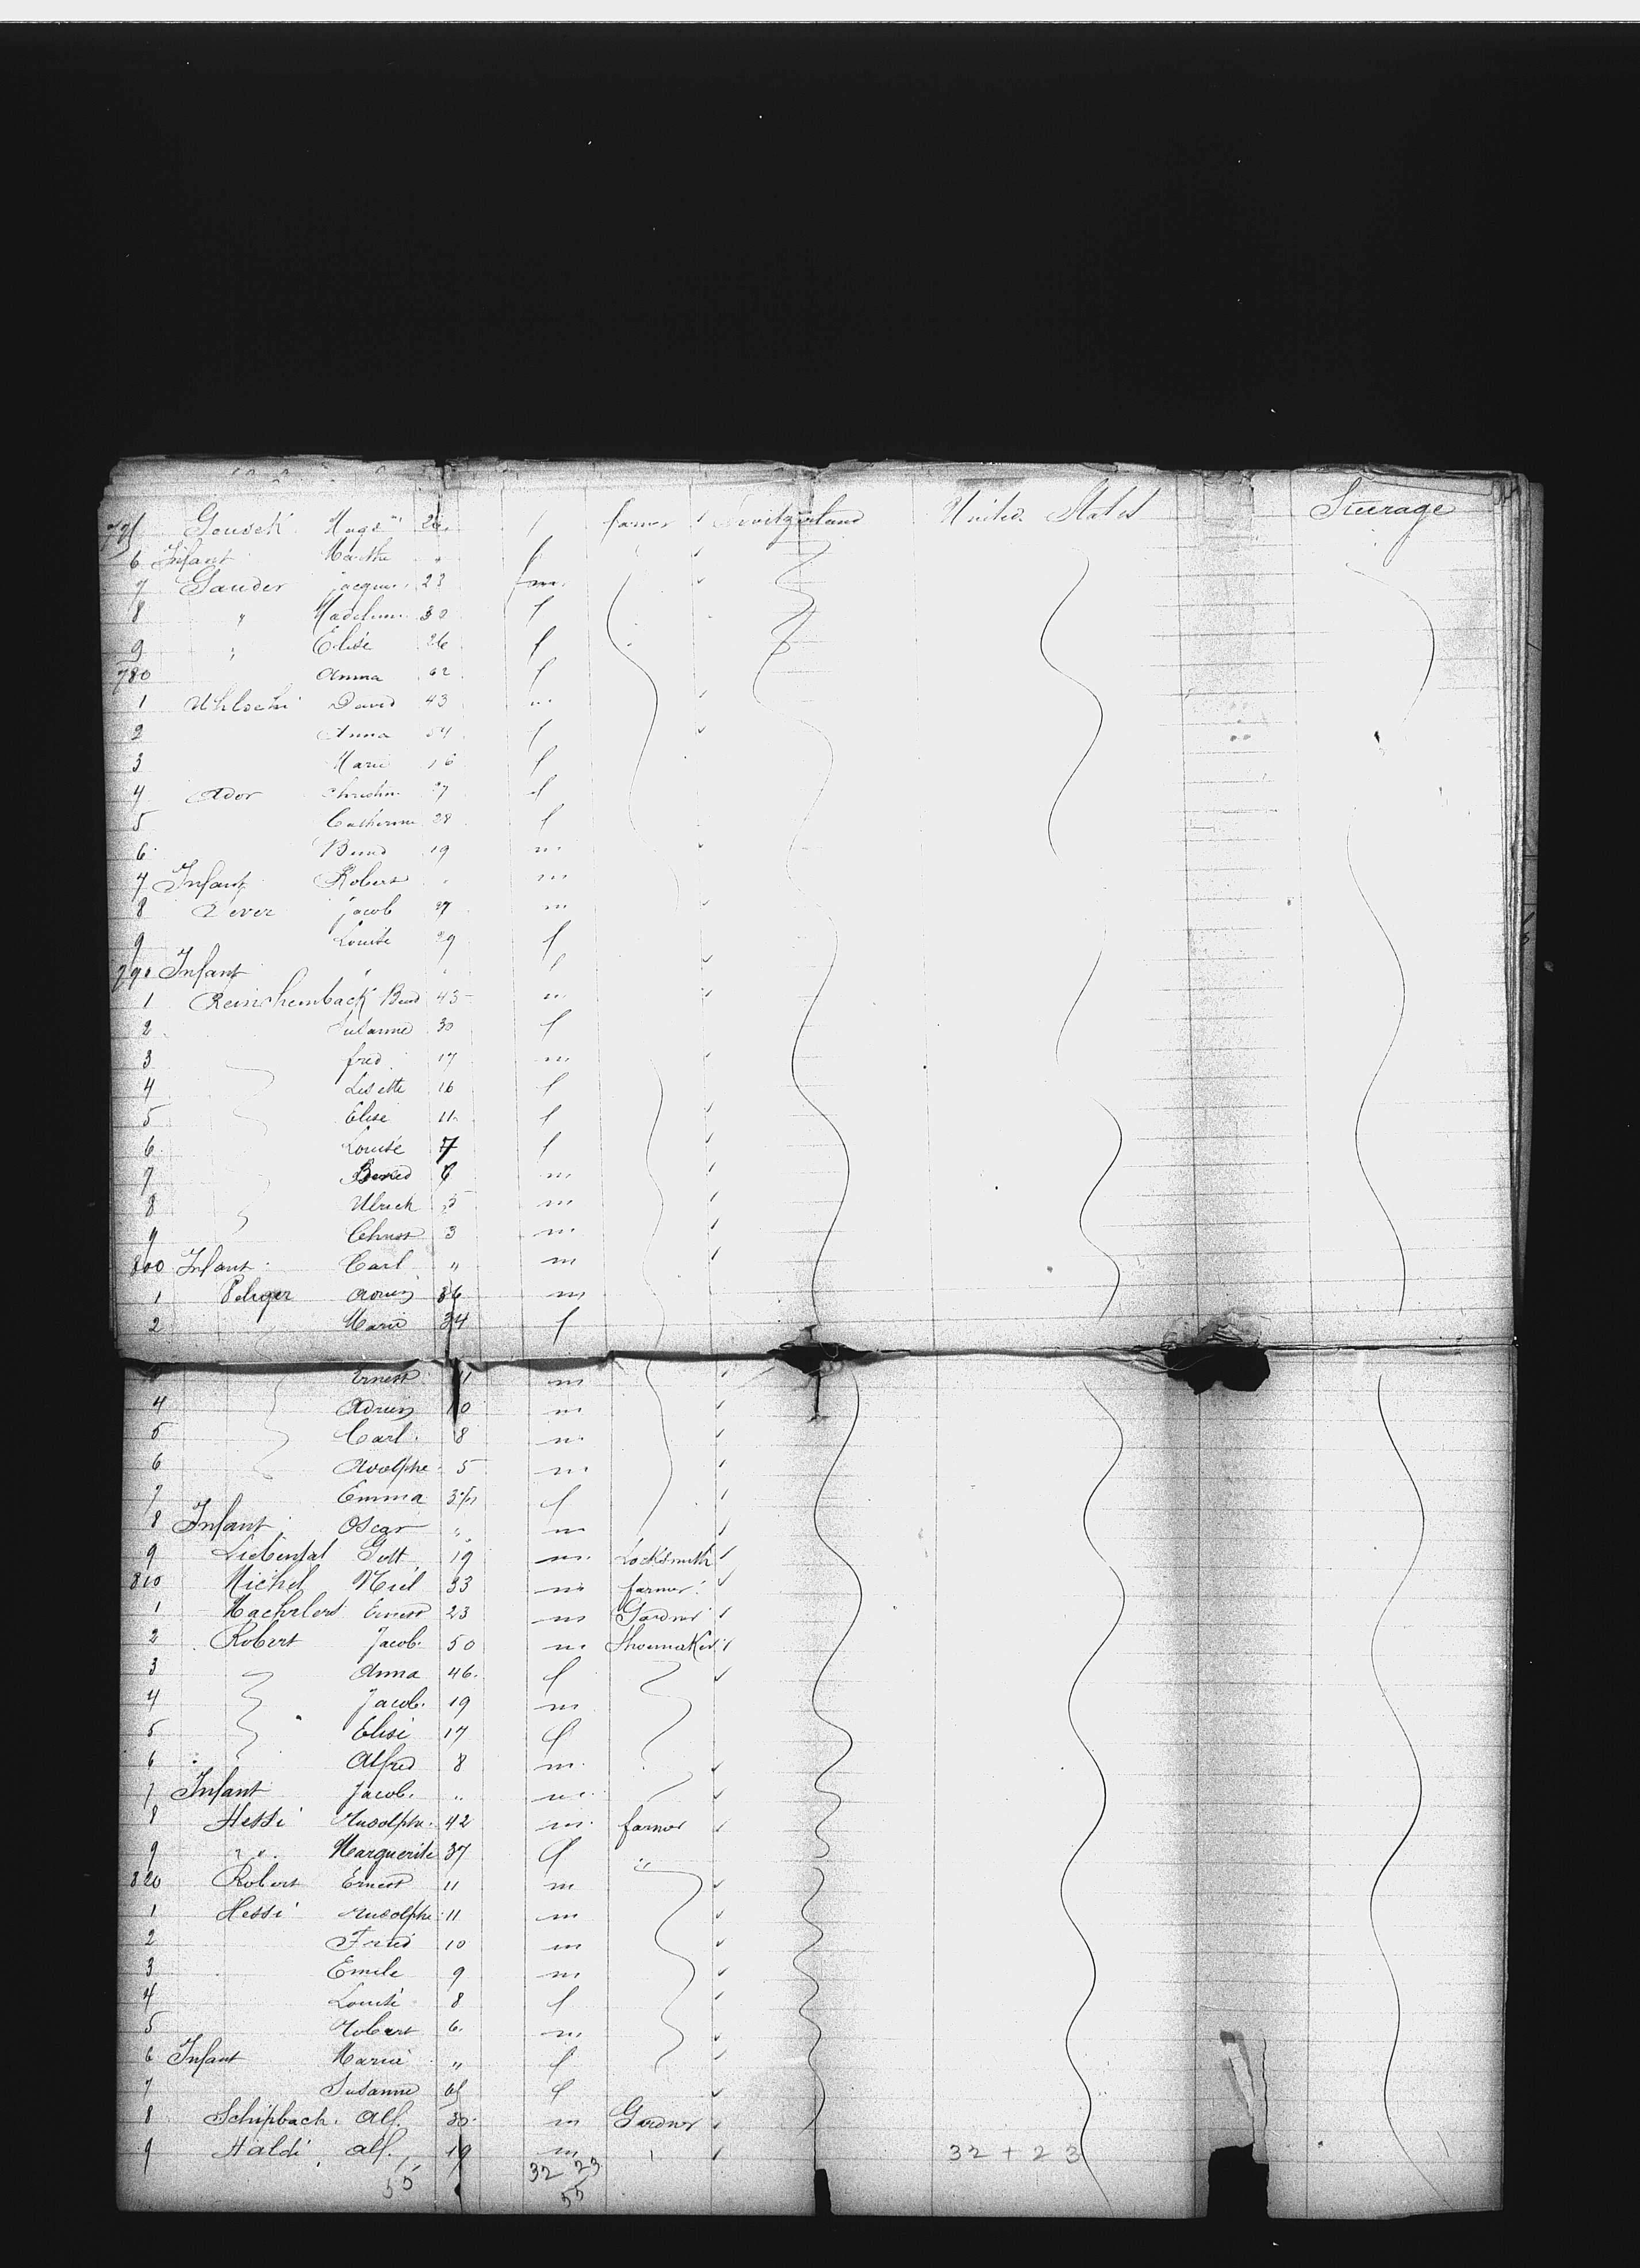 775 Gousek Magd 26 f farmer Switzerland United States Steerage
6 Infant Marthe " f
7 Gauder Jacques 23 m
8 " Madeleine 30 f
9 " Elise 26 f
780 Anna 62 f
1 Uhlschi David 43 m
2 Anna 54 f
3 Marie 16 f
4 Ador Christin 27 f
5 Catherine 28 f
6 Bend 19 m
7 Infant Robert " m
8 Jacob 27 m
9 Louise 29 f
790 Infant " f
1 Reinchemback Bend 43 m
2 Susanne 30 f
3 fred 17 m
4 Lisette 16 f
5 Elise 11 f
6 Louise 7 f
7 Bened 6 m
8 Ulrich 5 m
9 Chris 3 m
800 Infant Carl " m
1 Peliger Adrien 36 m
2 Marie 34 f
Ernest 11 m
4 Adrien 10 m
5 Carl 8 m
6 Adolphe 5 m
7 Emma f
8 Infant Oscar " m
9 Liebental Gott 19 m Locksmith
810 Michel 33 m farmer
1 Ernest 23 m Gardner
2 Robert Jacob 50 m Shoemaker
3 Anna 46 f
4 Jacob 19 m
5 Elise 17 f
6 Alfred 8 m
7 Infant Jacob " m
8 Hessi Rudolphe 42 m farmer
9 " " Marguerite 37 f "
820 Robert Ernest 11 m
1 Hessi Rudolphe 11 m
2 Fred 10 m
3 Emile 9 m
4 Louise 8 f
5 Robert 6 m
6 Infant Marie " f
7 Susanne f
8 Schipbach Alf. 30 m Gardner
9 Haldi Alf. 19 m 32 + 23
55 32 23
55